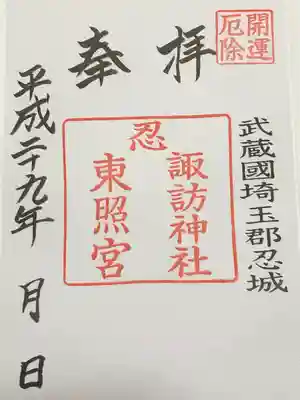 開運
厄除
奉拝
武蔵國埼玉郡忍城
忍
諏訪神社
東照宮
平成二十九年 月 日